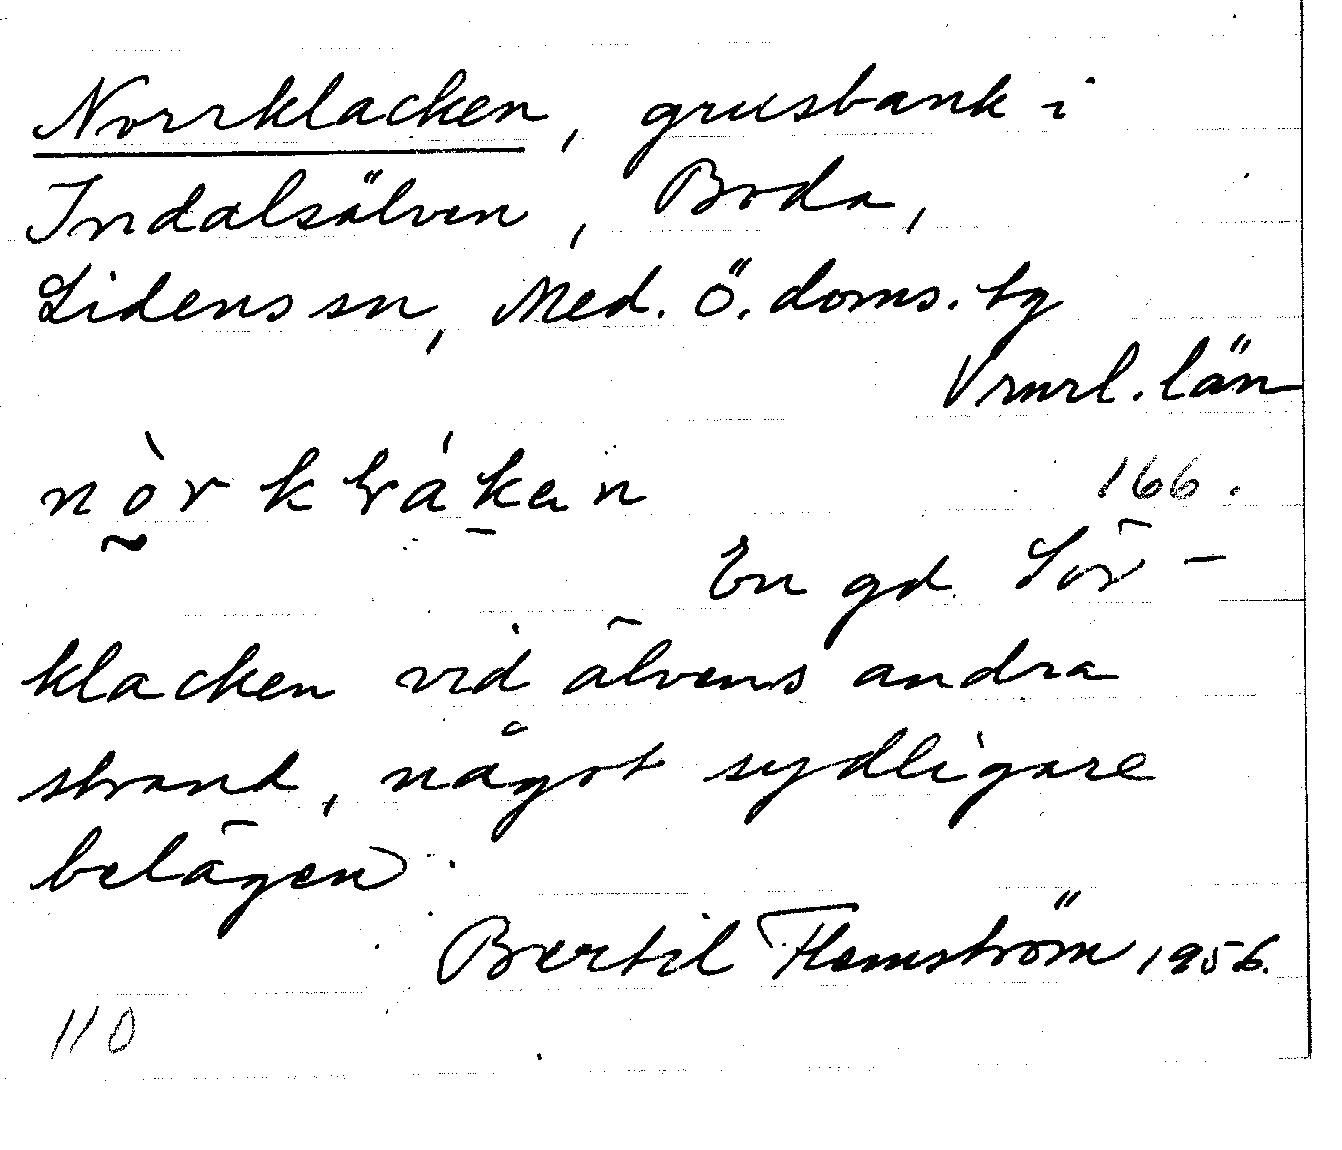 Norrklacken, grusbank i
Indalsälven, Boda,
Lidens sn, Med. Ö. doms. tg
Vrnrl. län
166.
En gd Sör-
klacken vid älvens andra
strand, något sydligare
belägen.
Bertil Flemström 1956.
110